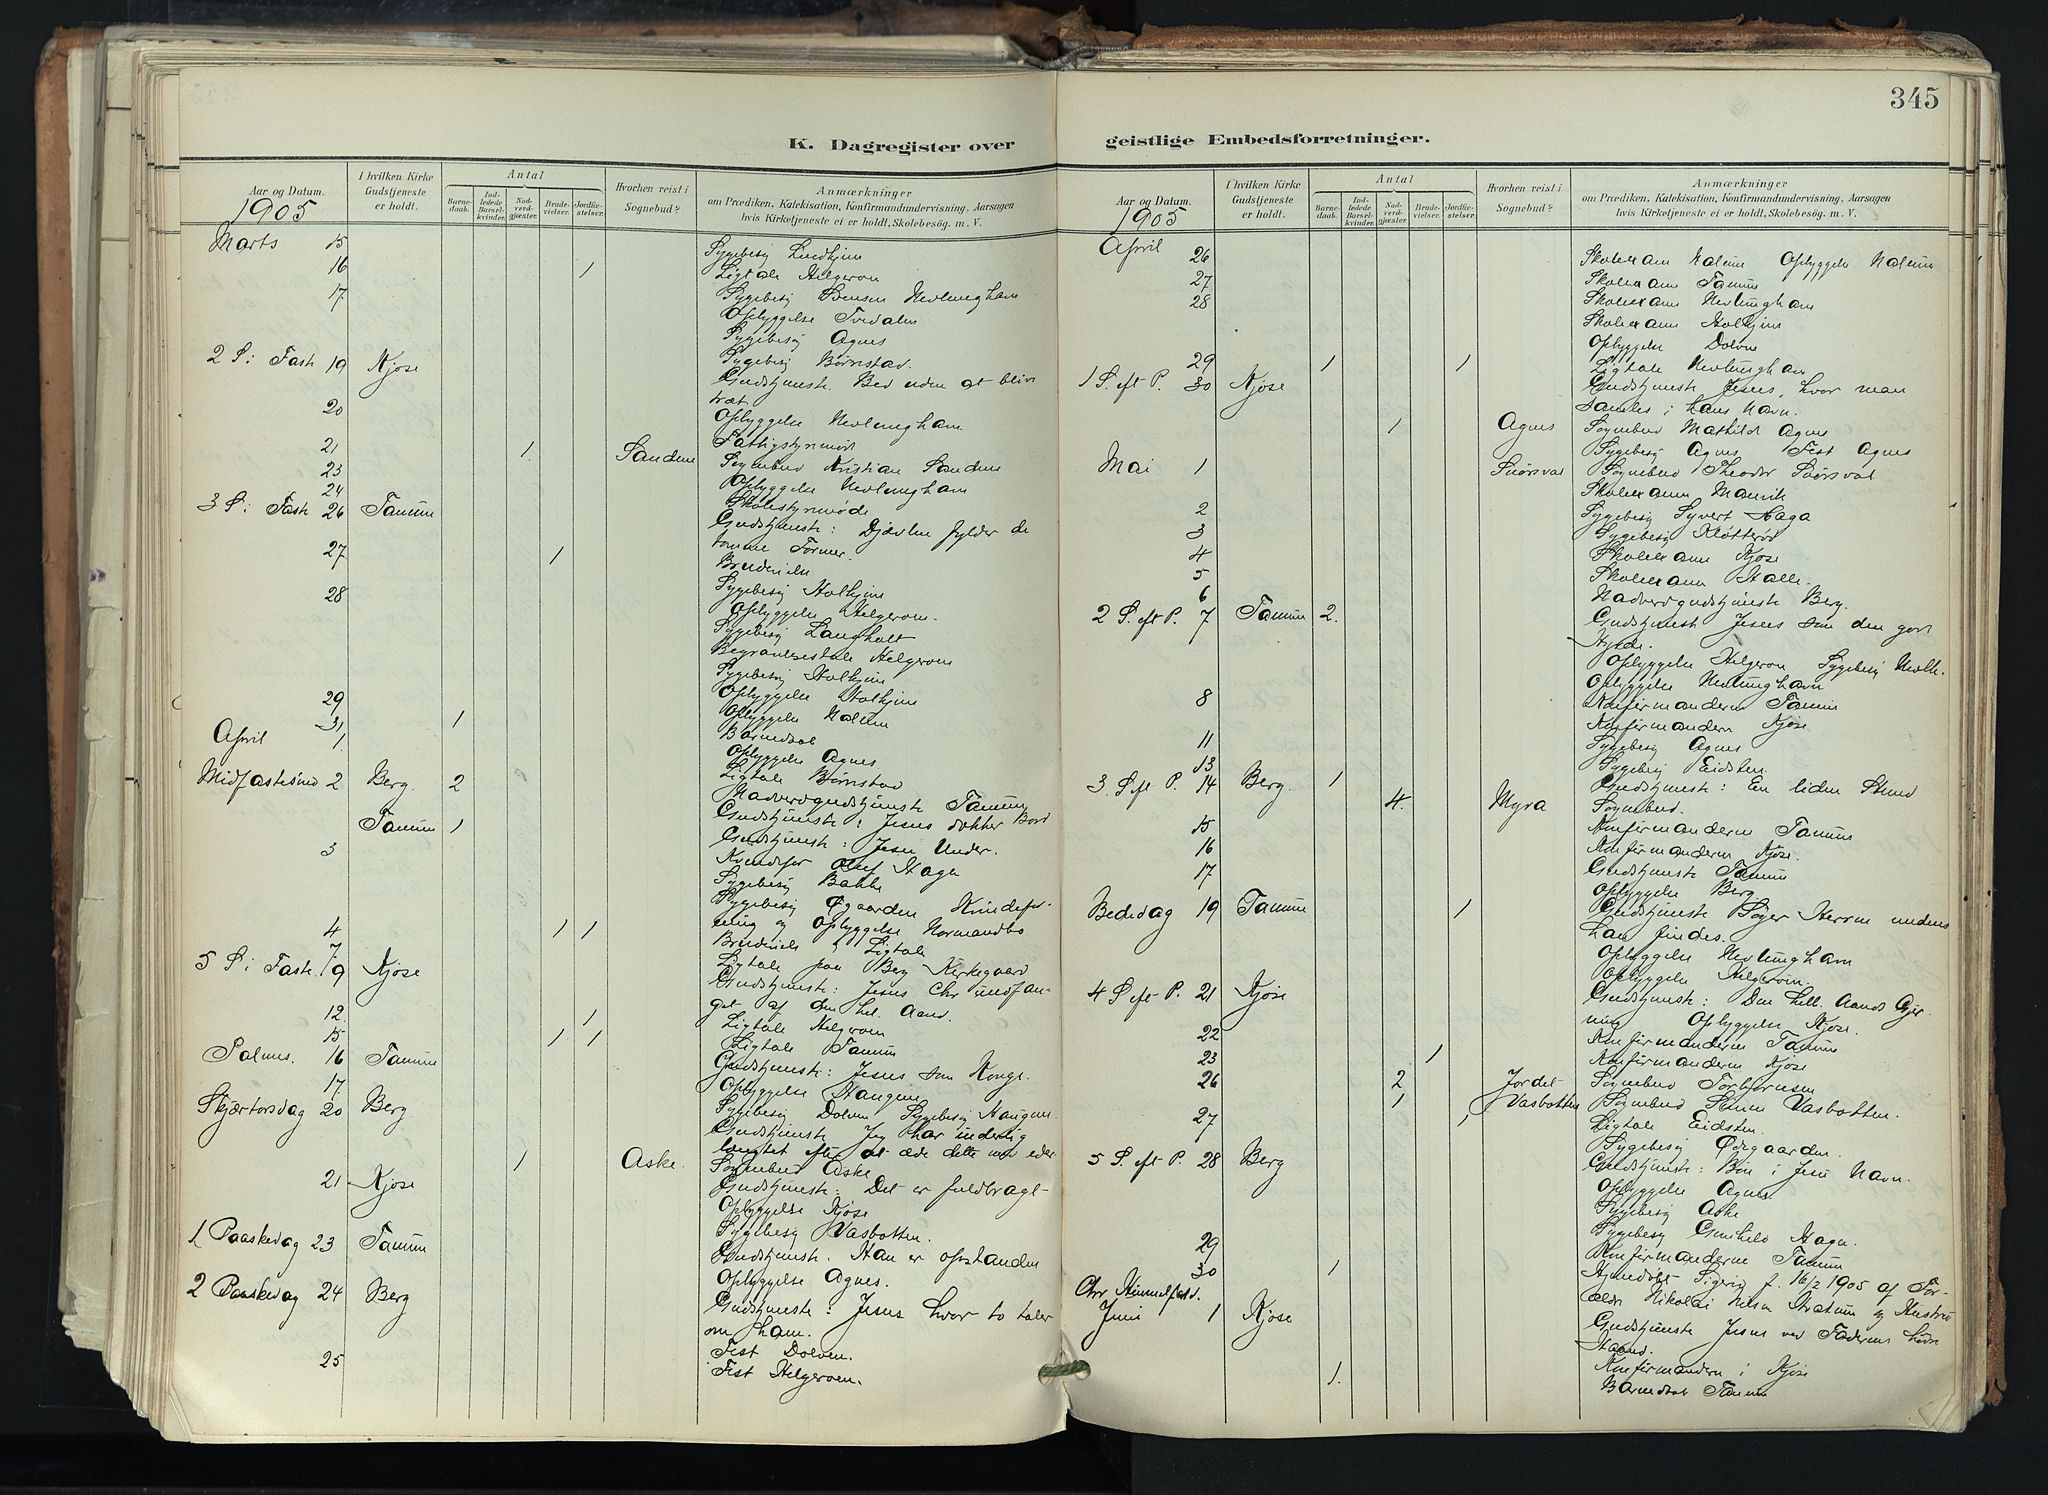 345
K. Dagregister over geistlige Embedsforretninger.
Aar og Datum.
1905
I hvilken Kirke Gudstjeneste er holdt.
Antal
Barnedaab.
Indledede Barselkvinder.
Nadverdgjæster.
Brudevielser.
Jordfæstelser.
Hvorhen reist i Sognebud?
Anmærkninger
om Prædiken, Katekisation, Konfirmandundervisning, Aarsagen
hvis Kirketjeneste ei er holdt, Skolebesøg. m. V.
Marts 15 Sygebesøg Lindhjem
16 1 Ligtale Helgeroen
17 Sygebesøg Nevlungham
Opbyggelse Tvedalen
Sygebesøg Agnes
Sygebesøg Børnstad.
2 S. i Faste 19 Kjose Gudstjeneste. Bed uden at bliv
træt
20 Opbyggelse Nevlungham
Fattigstyrmøde
21 1. Sanden Sognebud Kristian Sanden
23 Opbyggelse Nevlungham
24 Skolestyrmøde
3 S. i Faste 26 Tanum Gudstjeneste: Djævlen fylder de
tomme Former.
27 1 Brudevielse
Sygebesøg Holhjem
28 Opbyggelse Helgeroen.
Sygebesøg Langholt
Begravelsestale Helgeroen
Sygebesøg Holhjem
29 Opbyggelse Holhjem
Opbyggelse Nalum
31 1 Barnedaab
April 1. Opbyggelse Agnes
Ligtale Børnstad
Nadverdgudstjeneste Tanum
Midfastesønd 2 Berg. 2 Gudstjeneste: Jesus dækker Bord
Tanum 1 Gudstjeneste: Jesu Under.
3 Kvindefor Olef Haga
Sygebesøg Bakke
Sygebesøg Øgaarden Kvindefor-
ening og Opbyggelse Normandbo
4 1 1 Brudevielse & Ligtale
7 Ligtale paa Berg Kirkegaard
5 S. i Faste 9 Kjose Gudstjeneste: Jesus Chr undfan-
get af den hel. Aand.
12. 1 Ligtale Helgeroen
15 1 1 Ligtale Tanum
Palmes. 16 Tanum Gudstjeneste: Jesus som Konge.
17 Opbyggelse Haugene
Sygebesøg Dolven Sygebesøg Haugene
Skjærtorsdag 20 Berg Gudstjeneste Jeg har inderlig
længtet efter at æde dette med eder
1 Aske. Sognebud Aske
21 Kjose Gudstjeneste: Det er fuldbragt
Opbyggelse Kjose
Sygebesøg Vasbotten.
1 Paaskedag 23 Tanum Gudstjeneste. Han er opstanden
Opbyggelse Agnes.
2 Paaskedag 24 Berg Gudstjeneste: Jesus hvor to taler
om ham.
25 Fest Dolven.
Fest Helgeroen.
Aar og Datum.
1905
I hvilken Kirke Gudstjeneste er holdt.
Antal
Barnedaab.
Indledede Barselkvinder.
Nadverdgjæster.
Brudevielser.
Jordfæstelser.
Hvorhen reist i Sognebud?
Anmærkninger
om Prædiken, Katekisation, Konfirmandundervisning, Aarsagen
hvis Kirketjeneste ei er holdt, Skolebesøg. m. V.
April 26 Skolexam Nalum Opbyggelse Nalum
27 Skolexam Tanum
28 Skolexam Nevlungham
Skolexam Holhjem
Opbyggelse Dolven
29 1 1 Ligtale Nevlungham
1 S. eft P. 30 Kjose Gudstjeneste Jesus, hvor man
samles i hans Navn.
1 Agnes Sognebud Mathilde Agnes
Sygebesøg Agnes Fest Agnes
Mai 1 Snørsval Sognebud Theodor Snørsval
Skolexam Manvik
2 Sygebesøg Syvert Haga
3 Sygebesøg Kløtterød
4 Skolexam Kjose
5 Skolexam Halle.
6 Nadverdgudstjeneste Berg.
2 S. eft P. 7 Tanum 2. Gudstjeneste Jesus som den gode
Hyrde.
Opbyggelse Helgeroen Sygebesøg Nevlh.
Opbyggelse Nevlunghavn
8 Konfirmanderne Tanum
Konfirmandern Kjose
11 Sygebesøg Agnes
13 Sygebesøg Eidsten.
3. S eft P. 14 Berg. 1 Gudstjeneste: En liden Stund
4. Myra Sognebud.
15 Konfirmanderne Tanum
16 Konfirmanderne Kjose.
17 Gudstjeneste Tanum
Opbyggelse Berg
Bededag 19 Tanum 1 Gudstjeneste Søger Herren medens
han findes.
Opbyggelse Nevlungham
Opbyggelse Helgeroen.
4 S eft P. 21 Kjose Gudstjeneste: Den hell. Aands Gjer-
ning Opbyggelse Kjose.
22 Konfirmanderne Tanum
23 1 Konfirmanderne Kjose
26 2 Jordet Sognebud Torbjørnsen
1 Vasbotten Sognebud Vasbotten.
27 1 Ligtale Eidsten.
Sygebesøg Ødegaarden.
5 S. eft P. 28 Berg Gudstjeneste: Bøn i Jesu Navn.
Opbyggelse Agnes
Sygebesøg Aske
Sygebesøg Gunhild Haga.
29 Konfirmanderne Tanum
30 1 Hjemedøbt Sigrid f. 16/2 1905 af For-
Chr Himmelfartsd. ældre Nikolai Nilsen og Hustru
Juni 1 Kjose Gudstjeneste Jesus ved Faderens høire
Haand.
Konfirmandern i Kjose
1. Barnedaab Tanum